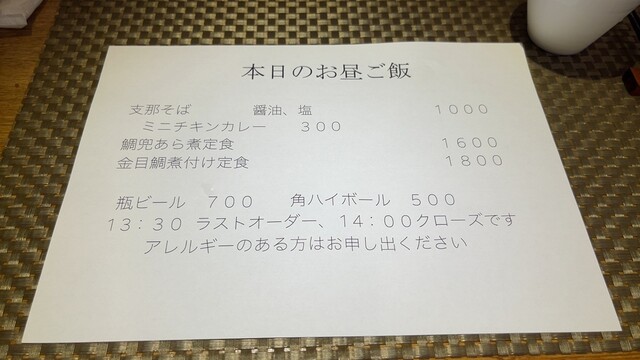 本日のお昼ご飯
支那そば　醤油、塩　１０００
ミニチキンカレー　３００
鯛兜あら煮定食　１６００
金目鯛煮付け定食　１８００
瓶ビール　７００　角ハイボール　５００
１３：３０ ラストオーダー、１４：００クローズです
アレルギーのある方はお申し出ください